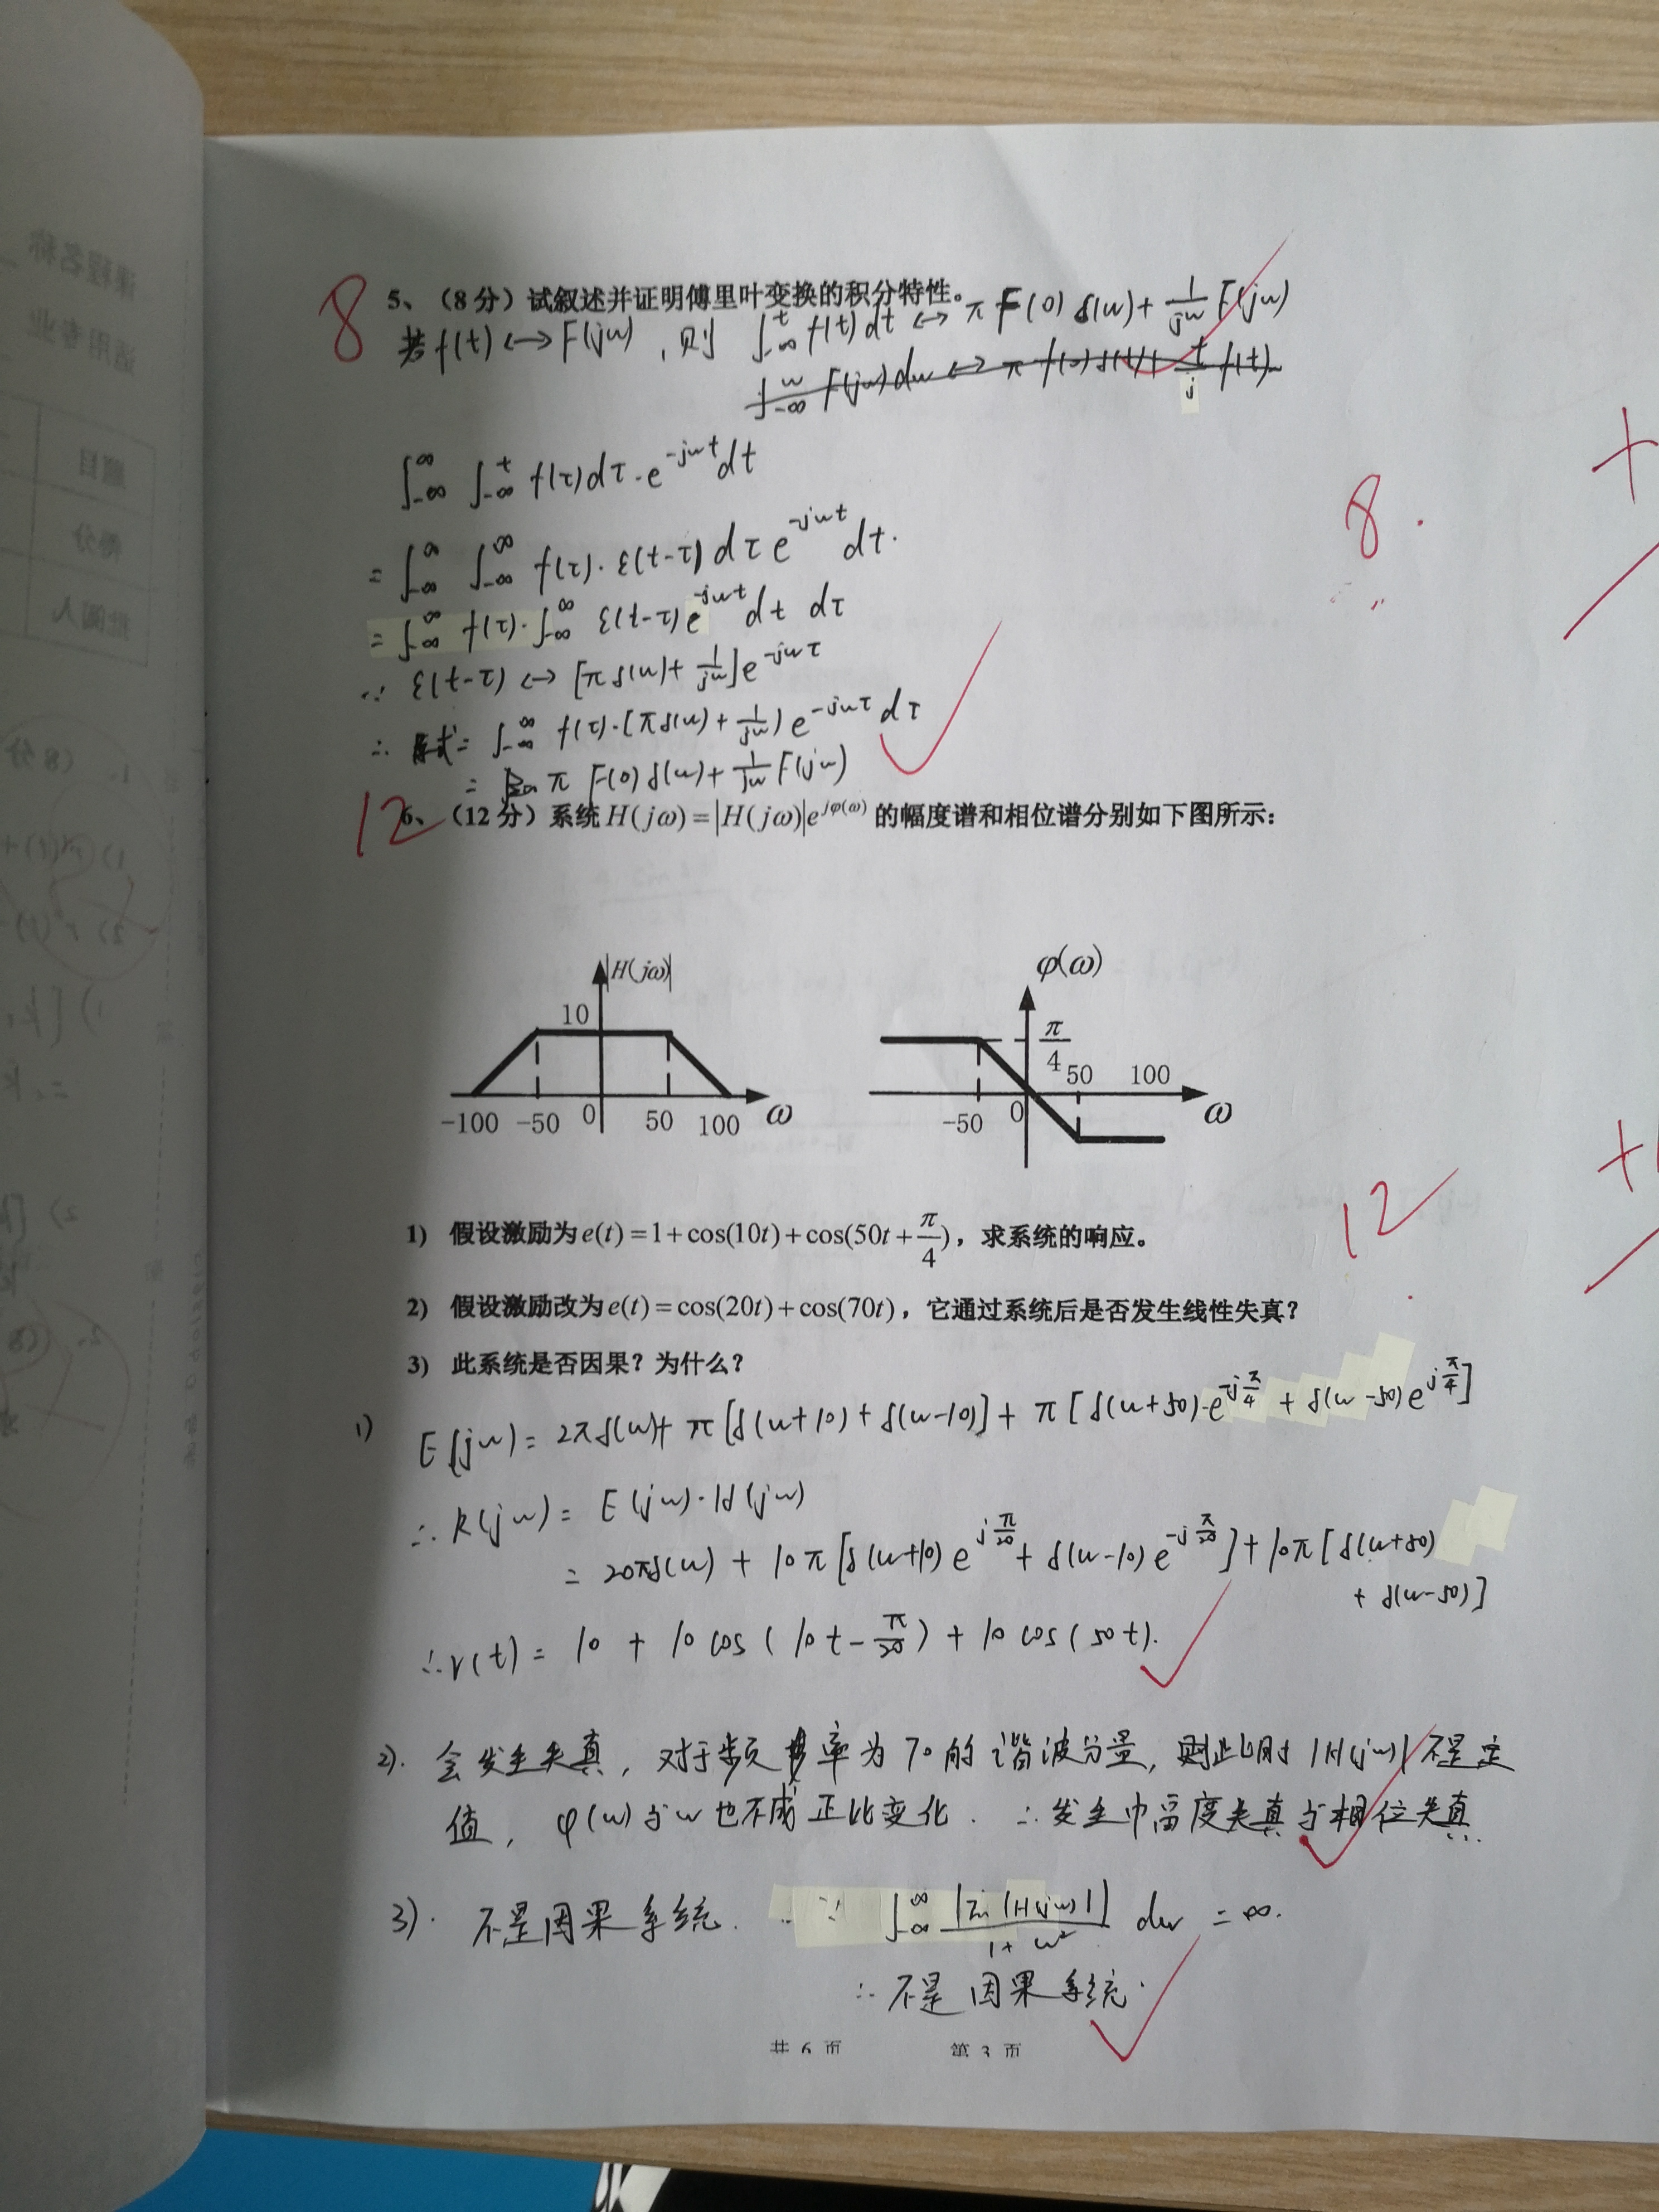 8
5、（8分）试叙述并证明傅里叶变换的积分特性。
若 f(t) ↔ F(jω) , 则 ∫_{-∞}^{t} f(t) dt ↔ π F(0) δ(ω) + 1/(jω) F(jω)
∫_{-∞}^{∞} ∫_{-∞}^{t} f(τ) dτ · e^{-jωt} dt
8.
= ∫_{-∞}^{∞} ∫_{-∞}^{∞} f(τ) · ε(t-τ) dτ e^{-jωt} dt.
= ∫_{-∞}^{∞} f(τ) · ∫_{-∞}^{∞} ε(t-τ) e^{-jωt} dt dτ
∵ ε(t-τ) ↔ [π δ(ω) + 1/(jω)] e^{-jωτ}
∴ 原式 = ∫_{-∞}^{∞} f(τ) · [π δ(ω) + 1/(jω)) e^{-jωτ} dτ
= π F(0) δ(ω) + 1/(jω) F(jω)
12
6、（12分）系统 H(jω)=|H(jω)|e^{jφ(ω)} 的幅度谱和相位谱分别如下图所示：
|H(jω)|
10
-100 -50 0 50 100 ω
φ(ω)
π/4
50 100
-50 0 ω
12
1) 假设激励为 e(t)=1+cos(10t)+cos(50t+π/4)，求系统的响应。
2) 假设激励改为 e(t)=cos(20t)+cos(70t)，它通过系统后是否发生线性失真？
3) 此系统是否因果？为什么？
1) E(jω) = 2πδ(ω)+ π [δ(ω+10) + δ(ω-10)] + π [δ(ω+50)·e^{-jπ/4} + δ(ω-50) e^{jπ/4}]
∴ R(jω) = E(jω)·H(jω)
= 20πδ(ω) + 10π [δ(ω+10) e^{jπ/20} + δ(ω-10) e^{-jπ/20}] + 10π [δ(ω+50)
+ δ(ω-50)]
∴ r(t) = 10 + 10 cos(10t - π/20) + 10 cos(50t).
2). 会发生失真，对于频率为70的谐波分量，则此时 |H(jω)| 不是定
值，φ(ω)与ω也不成正比变化. ∴ 发生幅度失真与相位失真
3). 不是因果系统. ∵ ∫_{-∞}^{∞} |ln|H(jω)||/(1+ω²) dω = ∞.
∴ 不是因果系统.
共 6 页 第 3 页